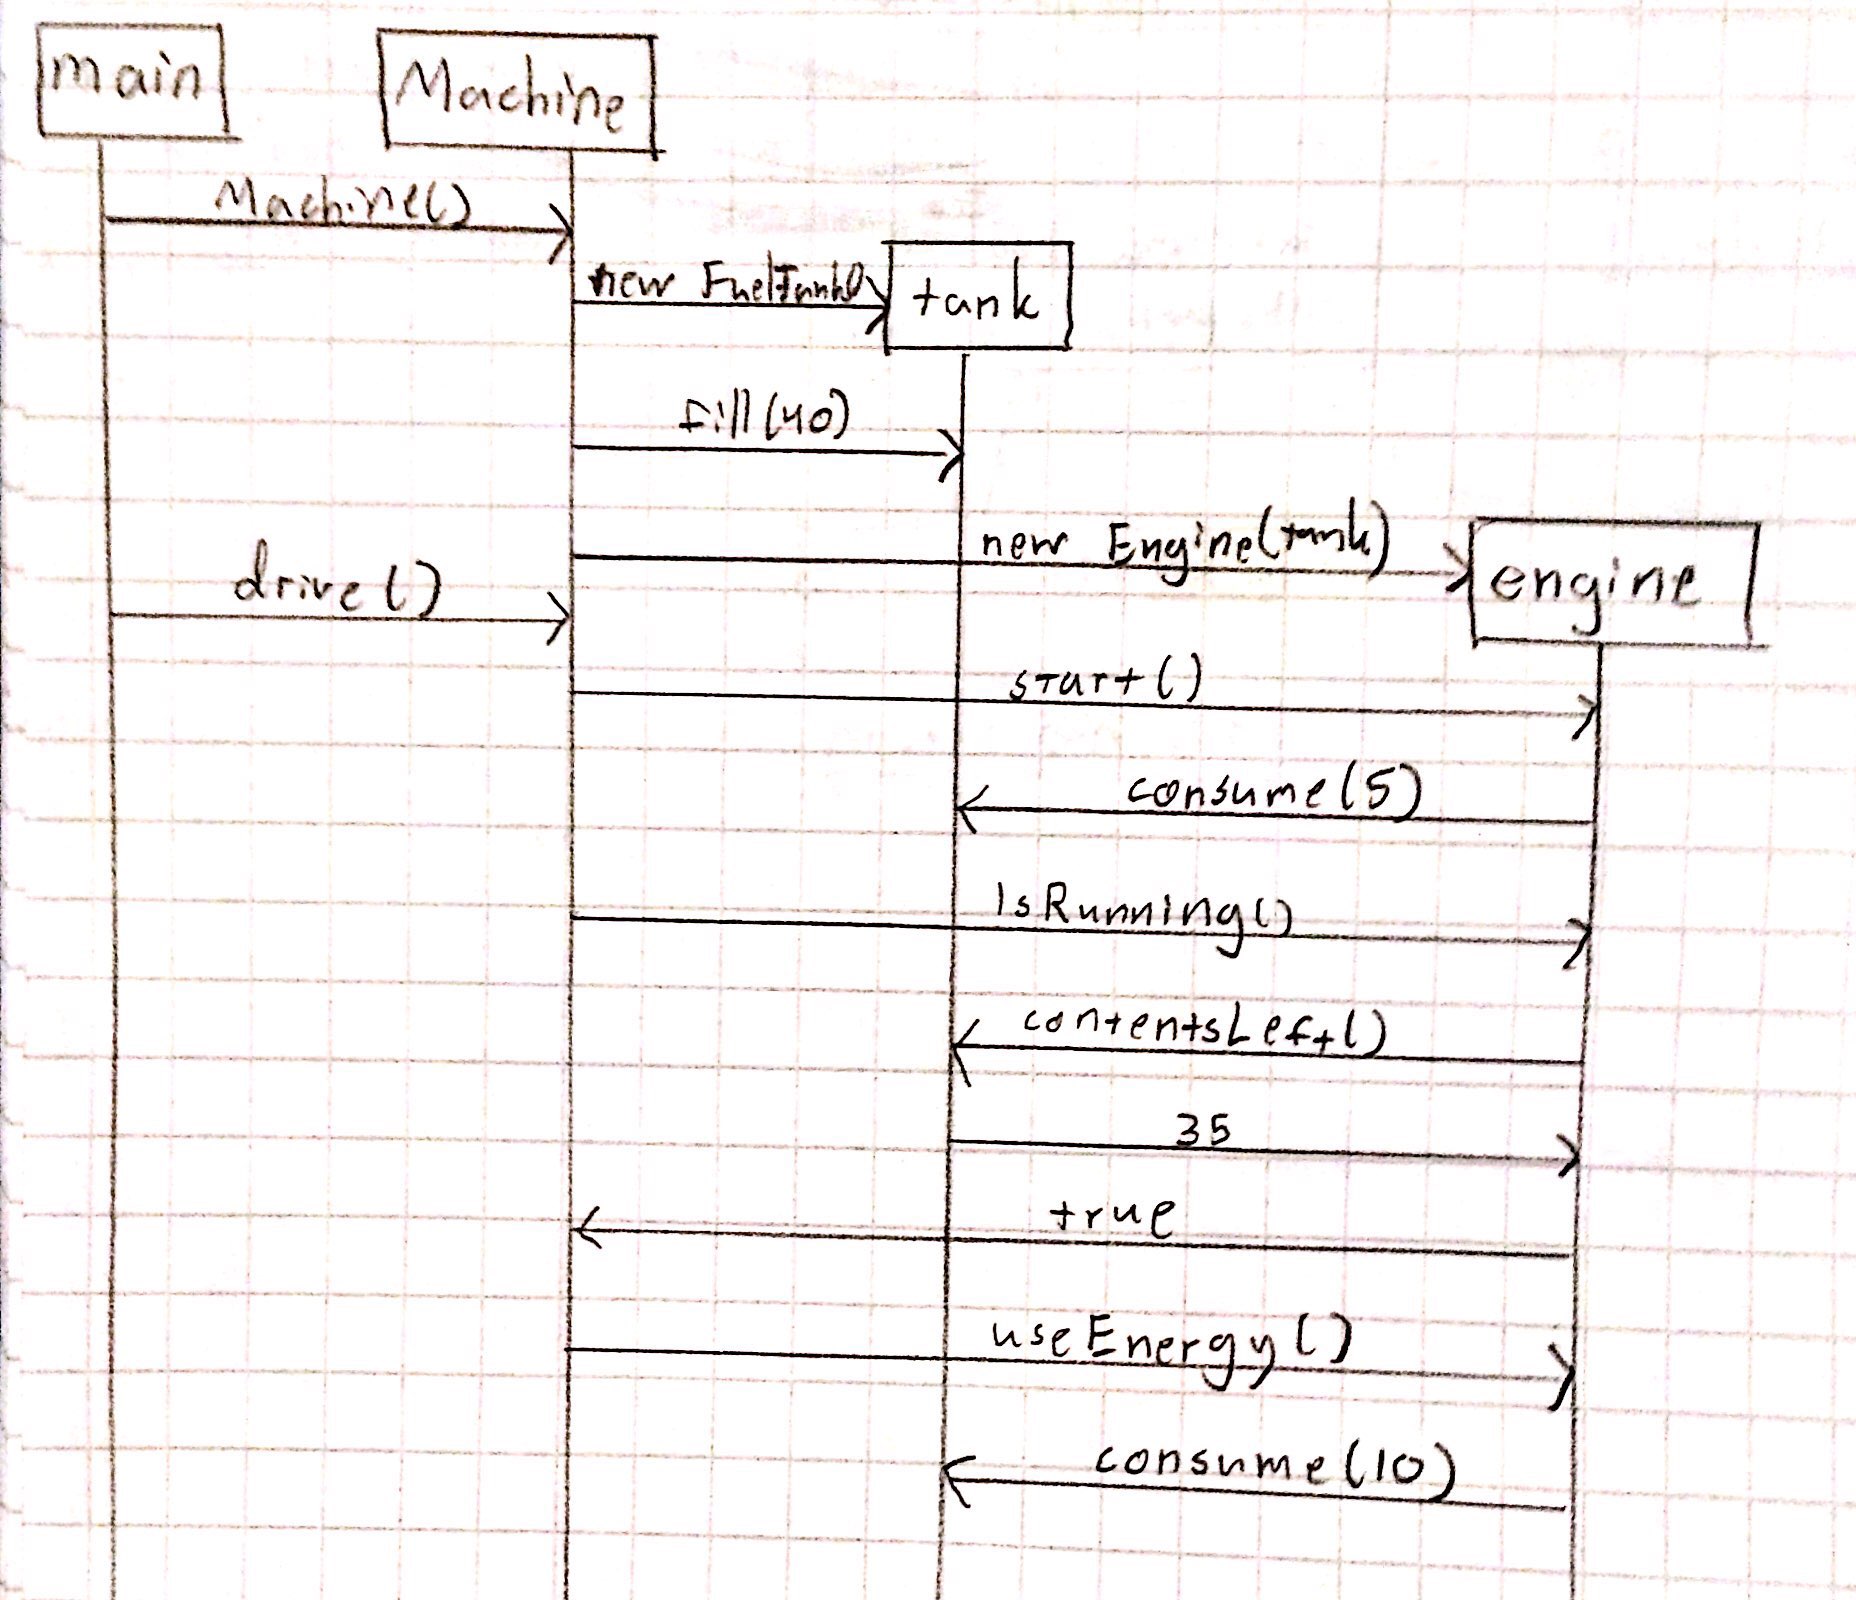 main
Machine
Machine()
new FuelTank()
tank
fill(40)
new Engine(tank)
engine
drive()
start()
consume(5)
isRunning()
contentsLeft()
35
true
useEnergy()
consume(10)